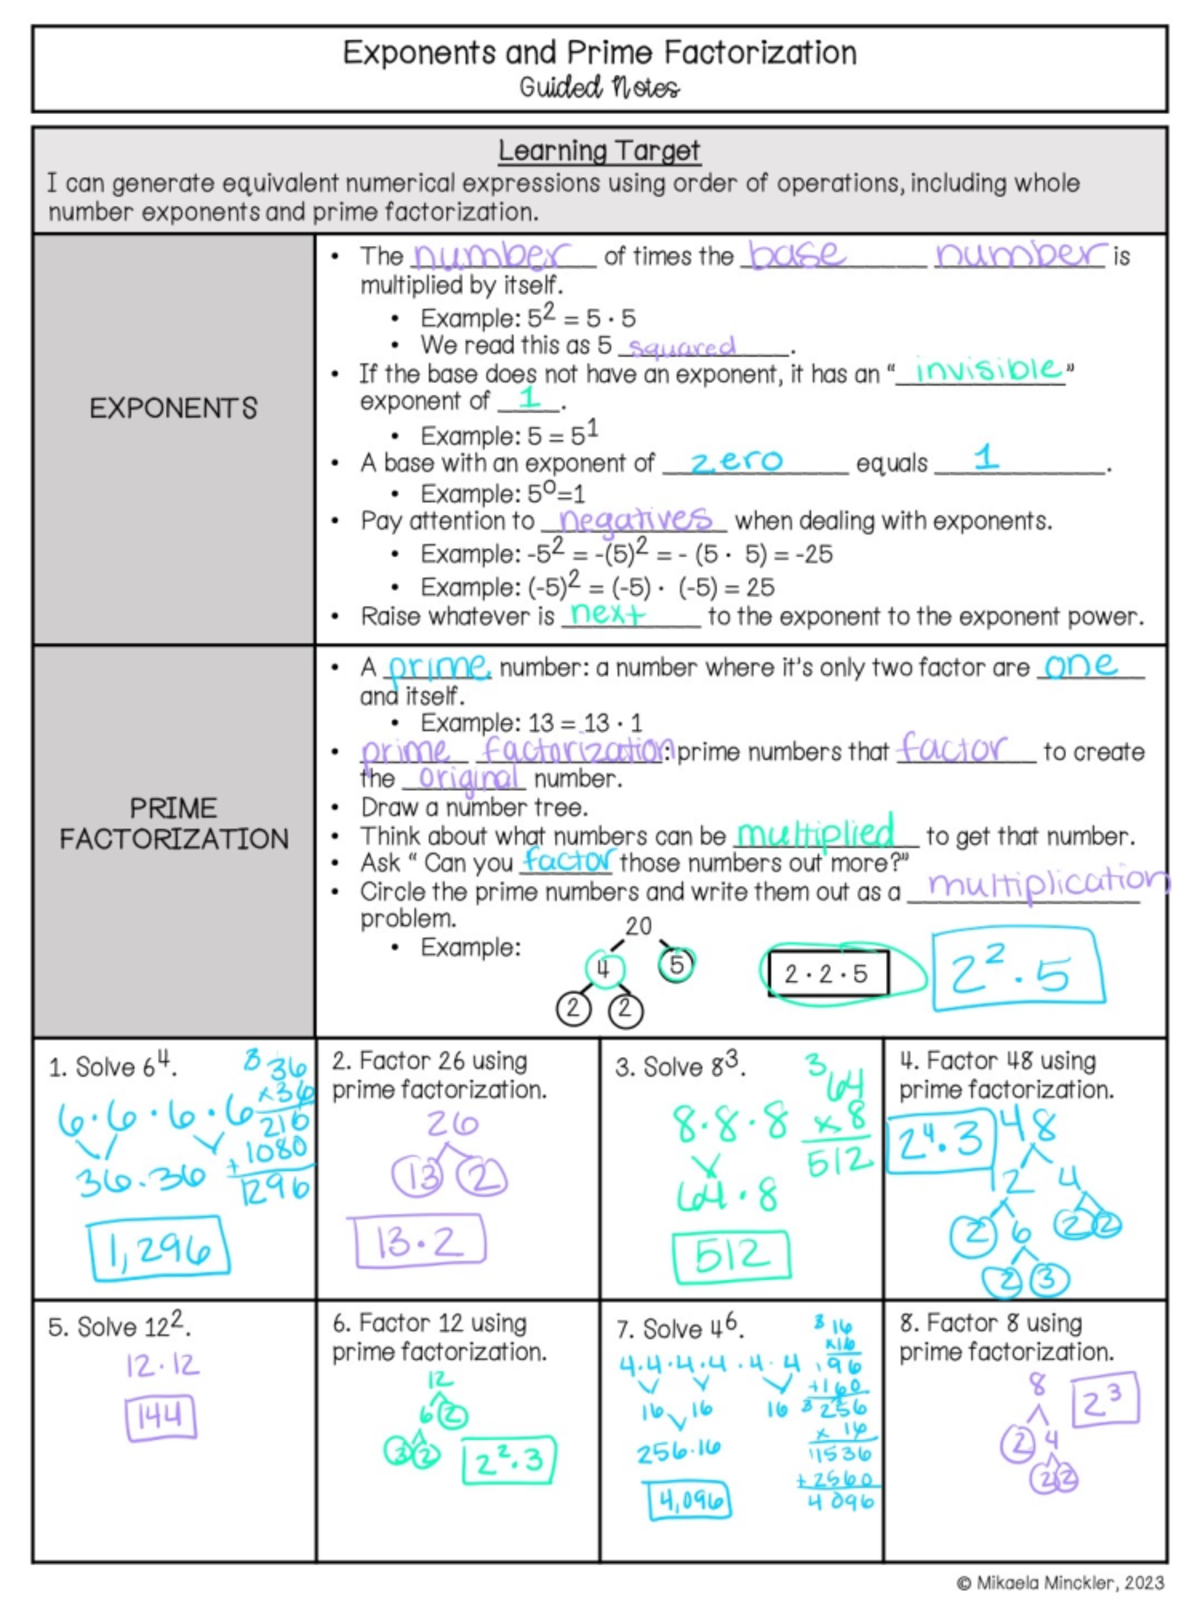 Exponents and Prime Factorization
Guided Notes
Learning Target
I can generate equivalent numerical expressions using order of operations, including whole
number exponents and prime factorization.
EXPONENTS
• The number of times the base number is
multiplied by itself.
• Example: 5² = 5 · 5
• We read this as 5 squared.
• If the base does not have an exponent, it has an “invisible”
exponent of 1.
• Example: 5 = 5¹
• A base with an exponent of zero equals 1.
• Example: 5⁰=1
• Pay attention to negatives when dealing with exponents.
• Example: -5² = -(5)² = - (5 · 5) = -25
• Example: (-5)² = (-5) · (-5) = 25
• Raise whatever is next to the exponent to the exponent power.
PRIME
FACTORIZATION
• A prime number: a number where it's only two factor are one
and itself.
• Example: 13 = 13 · 1
• prime factorization: prime numbers that factor to create
the original number.
• Draw a number tree.
• Think about what numbers can be multiplied to get that number.
• Ask “ Can you factor those numbers out more?”
• Circle the prime numbers and write them out as a multiplication
problem.
• Example:
20
4 5
2 2
2 · 2 · 5
2² · 5
1. Solve 6⁴.
6 · 6 · 6 · 6
36 · 36
1,296
3 36
x36
216
+1080
1296
2. Factor 26 using
prime factorization.
26
13 2
13 · 2
3. Solve 8³.
8 · 8 · 8
64 · 8
512
3
64
x 8
512
4. Factor 48 using
prime factorization.
2⁴ · 3
48
12 4
2 6 2 2
2 3
5. Solve 12².
12 · 12
144
6. Factor 12 using
prime factorization.
12
6 2
3 2
2² · 3
7. Solve 4⁶.
4 · 4 · 4 · 4 · 4 · 4
16 16 16
256 · 16
4,096
3 16
x16
196
+160
3 256
x 16
1536
+2560
4096
8. Factor 8 using
prime factorization.
8
2 4
2 2
2³
© Mikaela Minckler, 2023